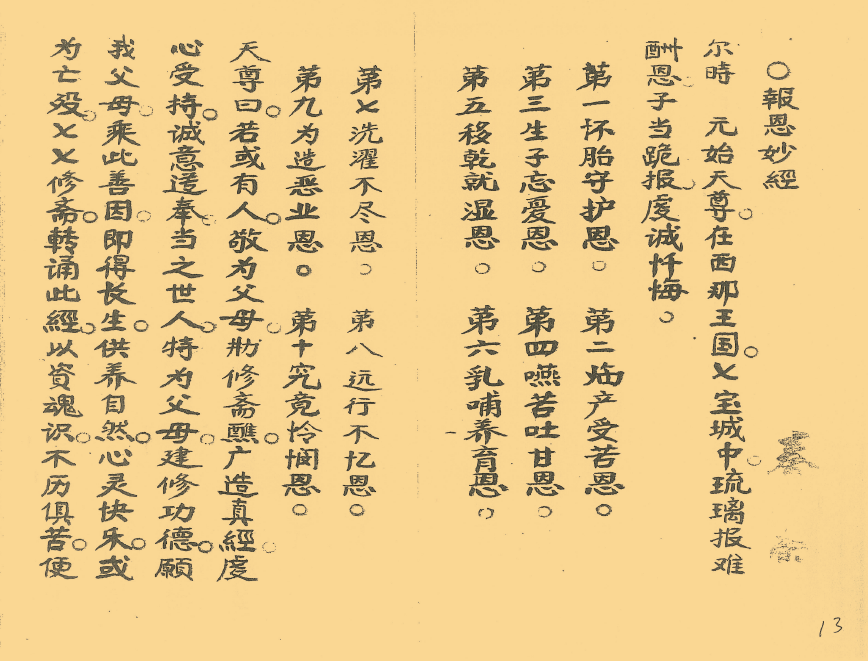 〇報恩妙經
尔時 元始天尊。在西那王国。七宝城中。琉璃报难
酬恩。子当跪报。虔诚忏悔。
第一怀胎守护恩。 第二临产受苦恩。
第三生子忘憂恩。 第四嚥苦吐甘恩。
第五移乾就湿恩。 第六乳哺养育恩。
第七洗濯不尽恩。 第八远行不忆恩。
第九为造恶业恩。 第十究竟怜悯恩。
天尊曰。若或有人。敬为父母。勑修斋醮。广造真經。虔
心受持。诚意送奉。当之世人。特为父母。建修功德。願
我父母。乘此善因。即得长生。供养自然。心灵快乐。或
为亡殁。乂乂修斋。转诵此經。以资魂识。不历俱苦。便
13